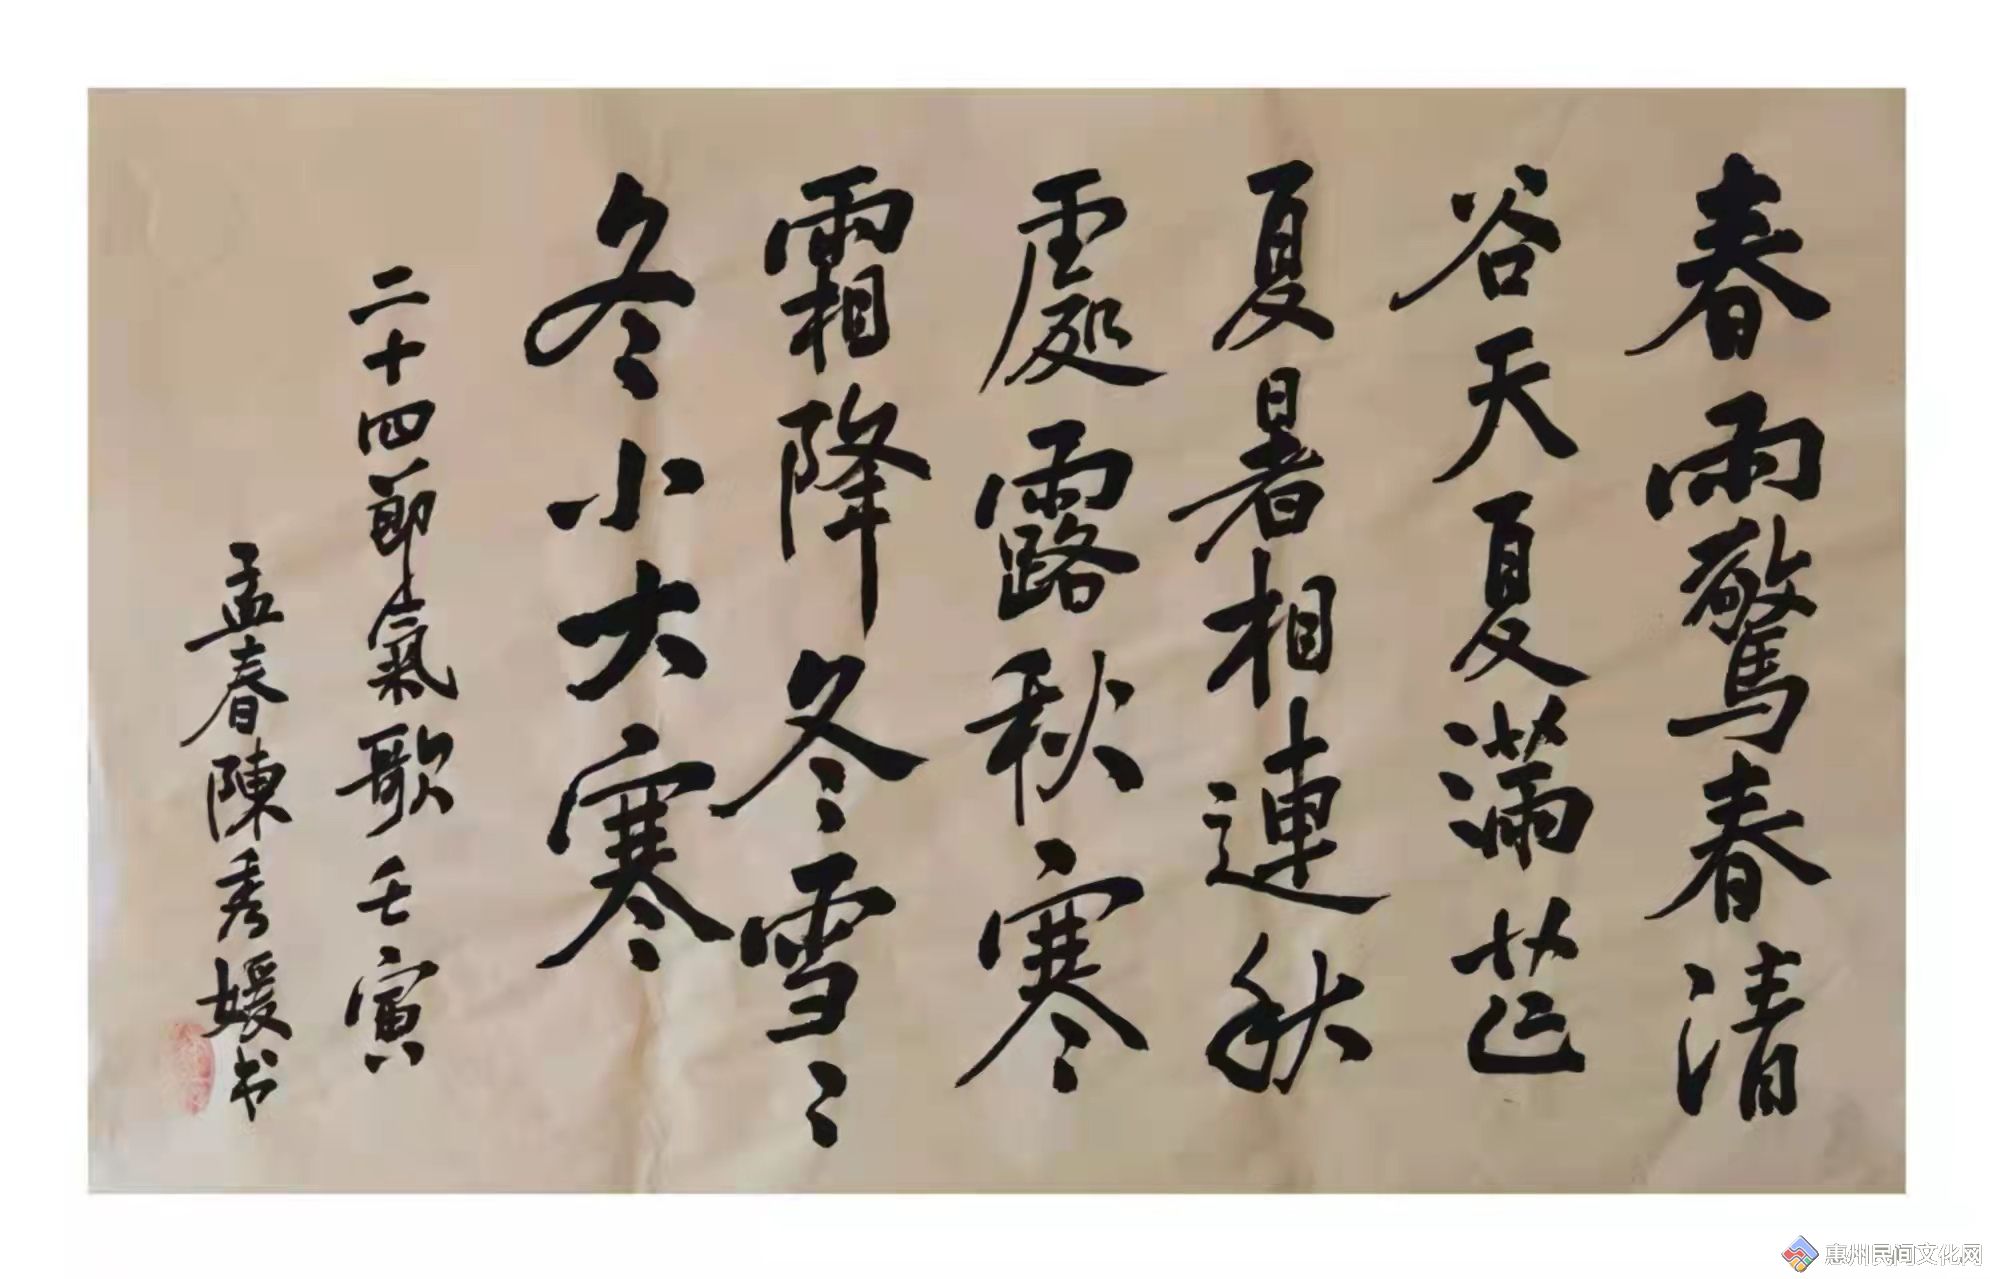 春雨驚春清
谷天夏滿芒
夏暑相連秋
處露秋寒
霜降冬雪〻
冬小大寒
二十四節氣歌壬寅
孟春陳秀媛书
惠州民间文化网